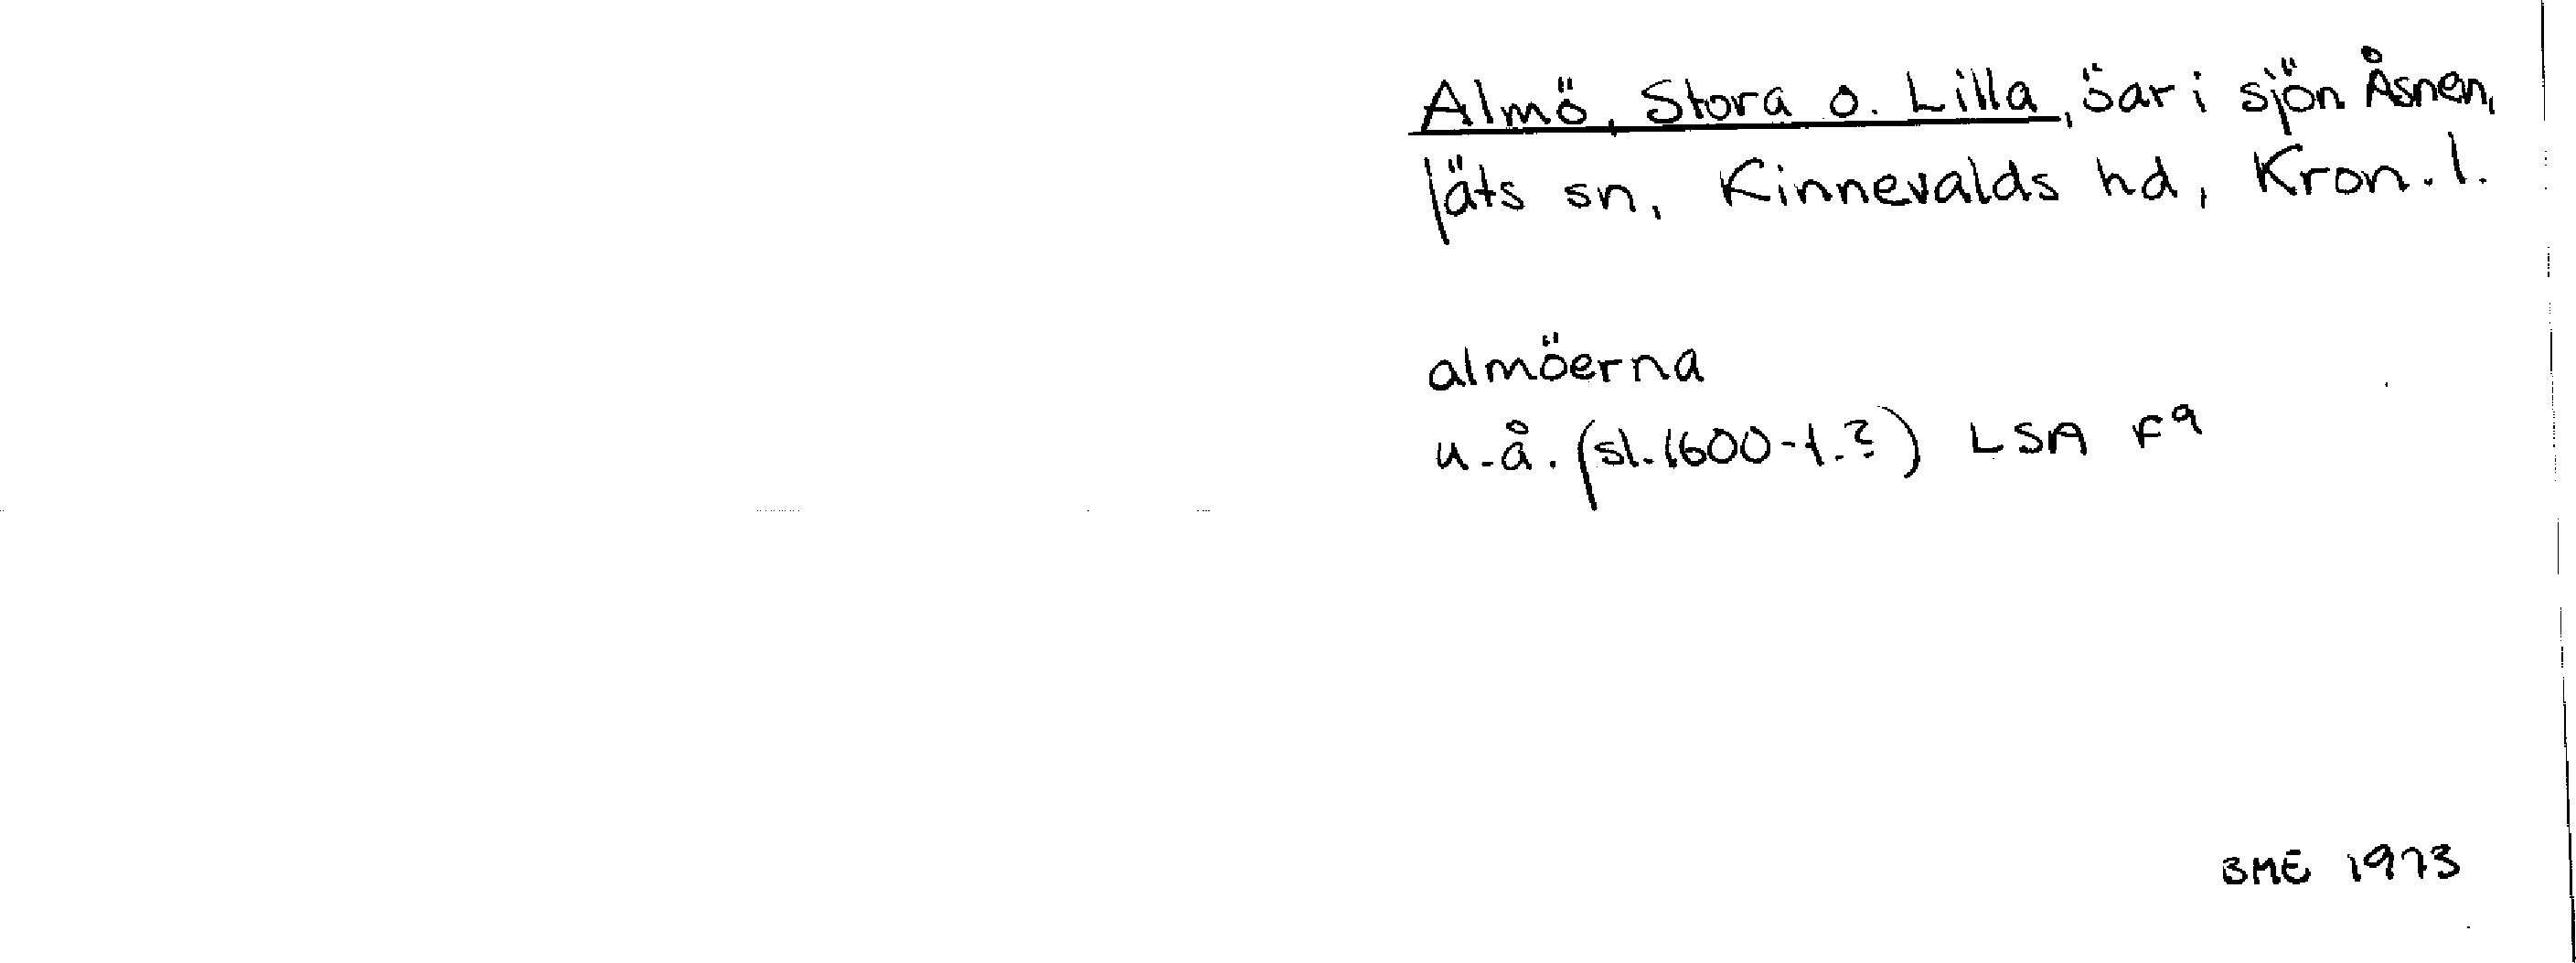 Almö, Stora o. Lilla, öar i sjön Åsnen,
Jäts sn, Kinnevalds hd, Kron. l.
almöerna
u.å. (sl. 1600-t.?) LSA F9
BME 1973